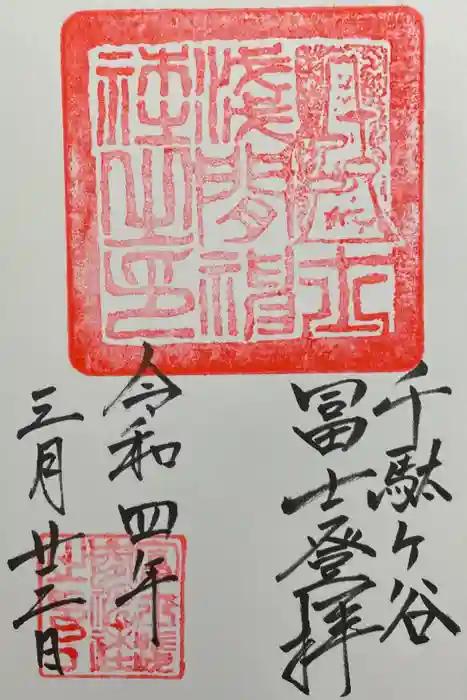 冨士
浅間神
社之印
千駄ヶ谷
冨士登拝
令和四年
三月廿三日